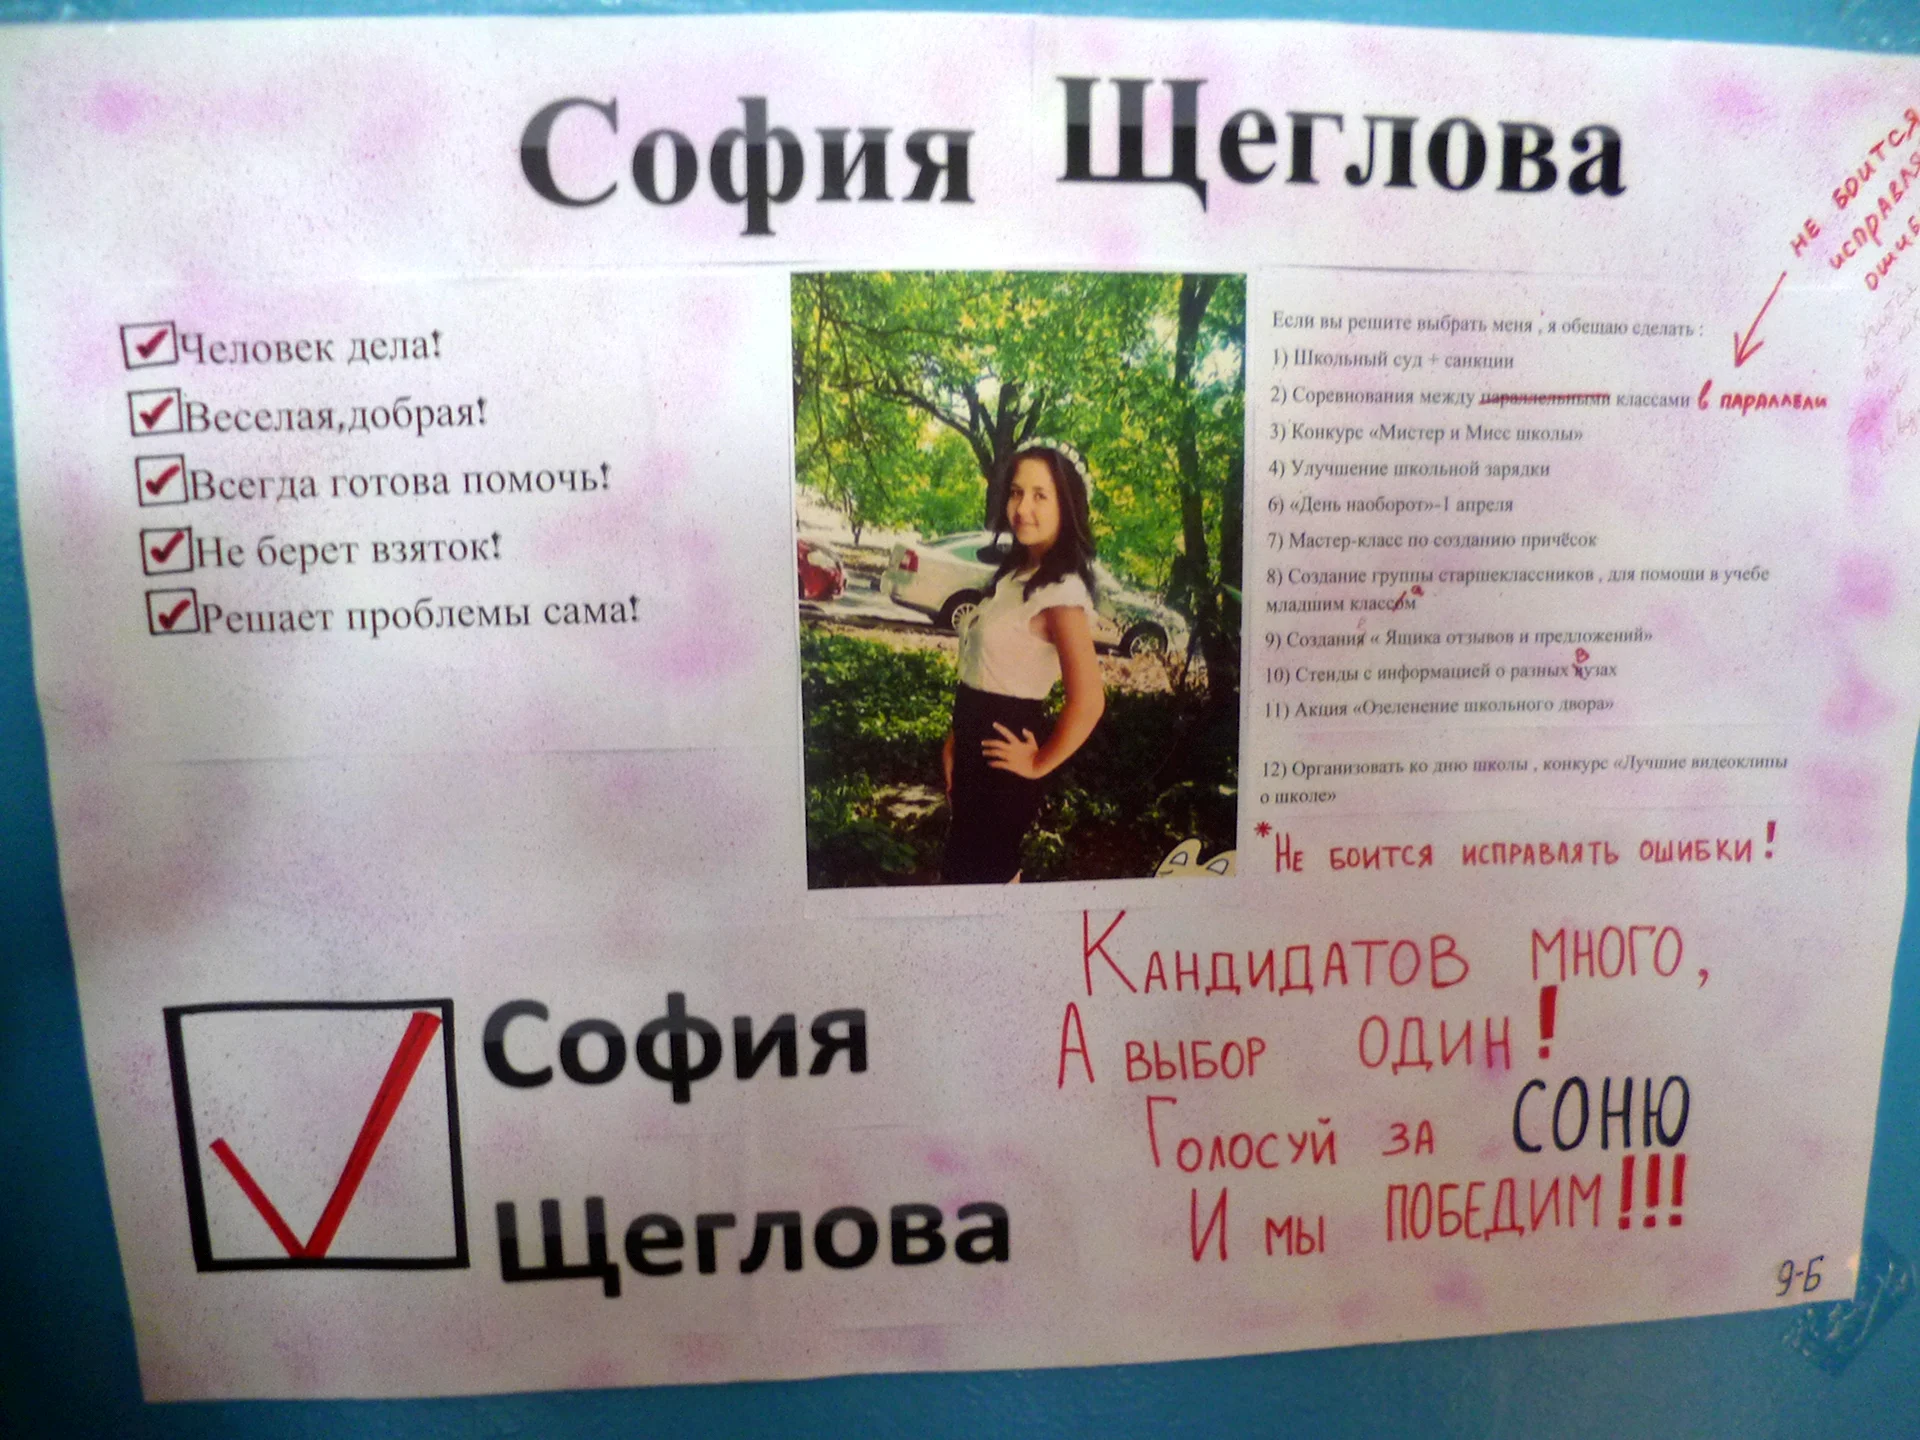 София Щеглова
Человек дела!
Веселая,добрая!
Всегда готова помочь!
Не берет взяток!
Решает проблемы сама!
не боится
исправля
ошиб
Если вы решите выбрать меня , я обещаю сделать :
1) Школьный суд + санкции
2) Соревнования между параллельными классами в параллели
3) Конкурс «Мистер и Мисс школы»
4) Улучшение школьной зарядки
6) «День наоборот»-1 апреля
7) Мастер-класс по созданию причёсок
8) Создание группы старшеклассников , для помощи в учебе
младшим классам
9) Создание « Ящика отзывов и предложений»
10) Стенды с информацией о разных вузах
11) Акция «Озеленение школьного двора»
12) Организовать ко дню школы , конкурс «Лучшие видеоклипы
о школе»
*Не боится исправлять ошибки!
Кандидатов много,
А выбор один!
Голосуй за СОНЮ
И мы победим!!!
София
Щеглова
9-Б